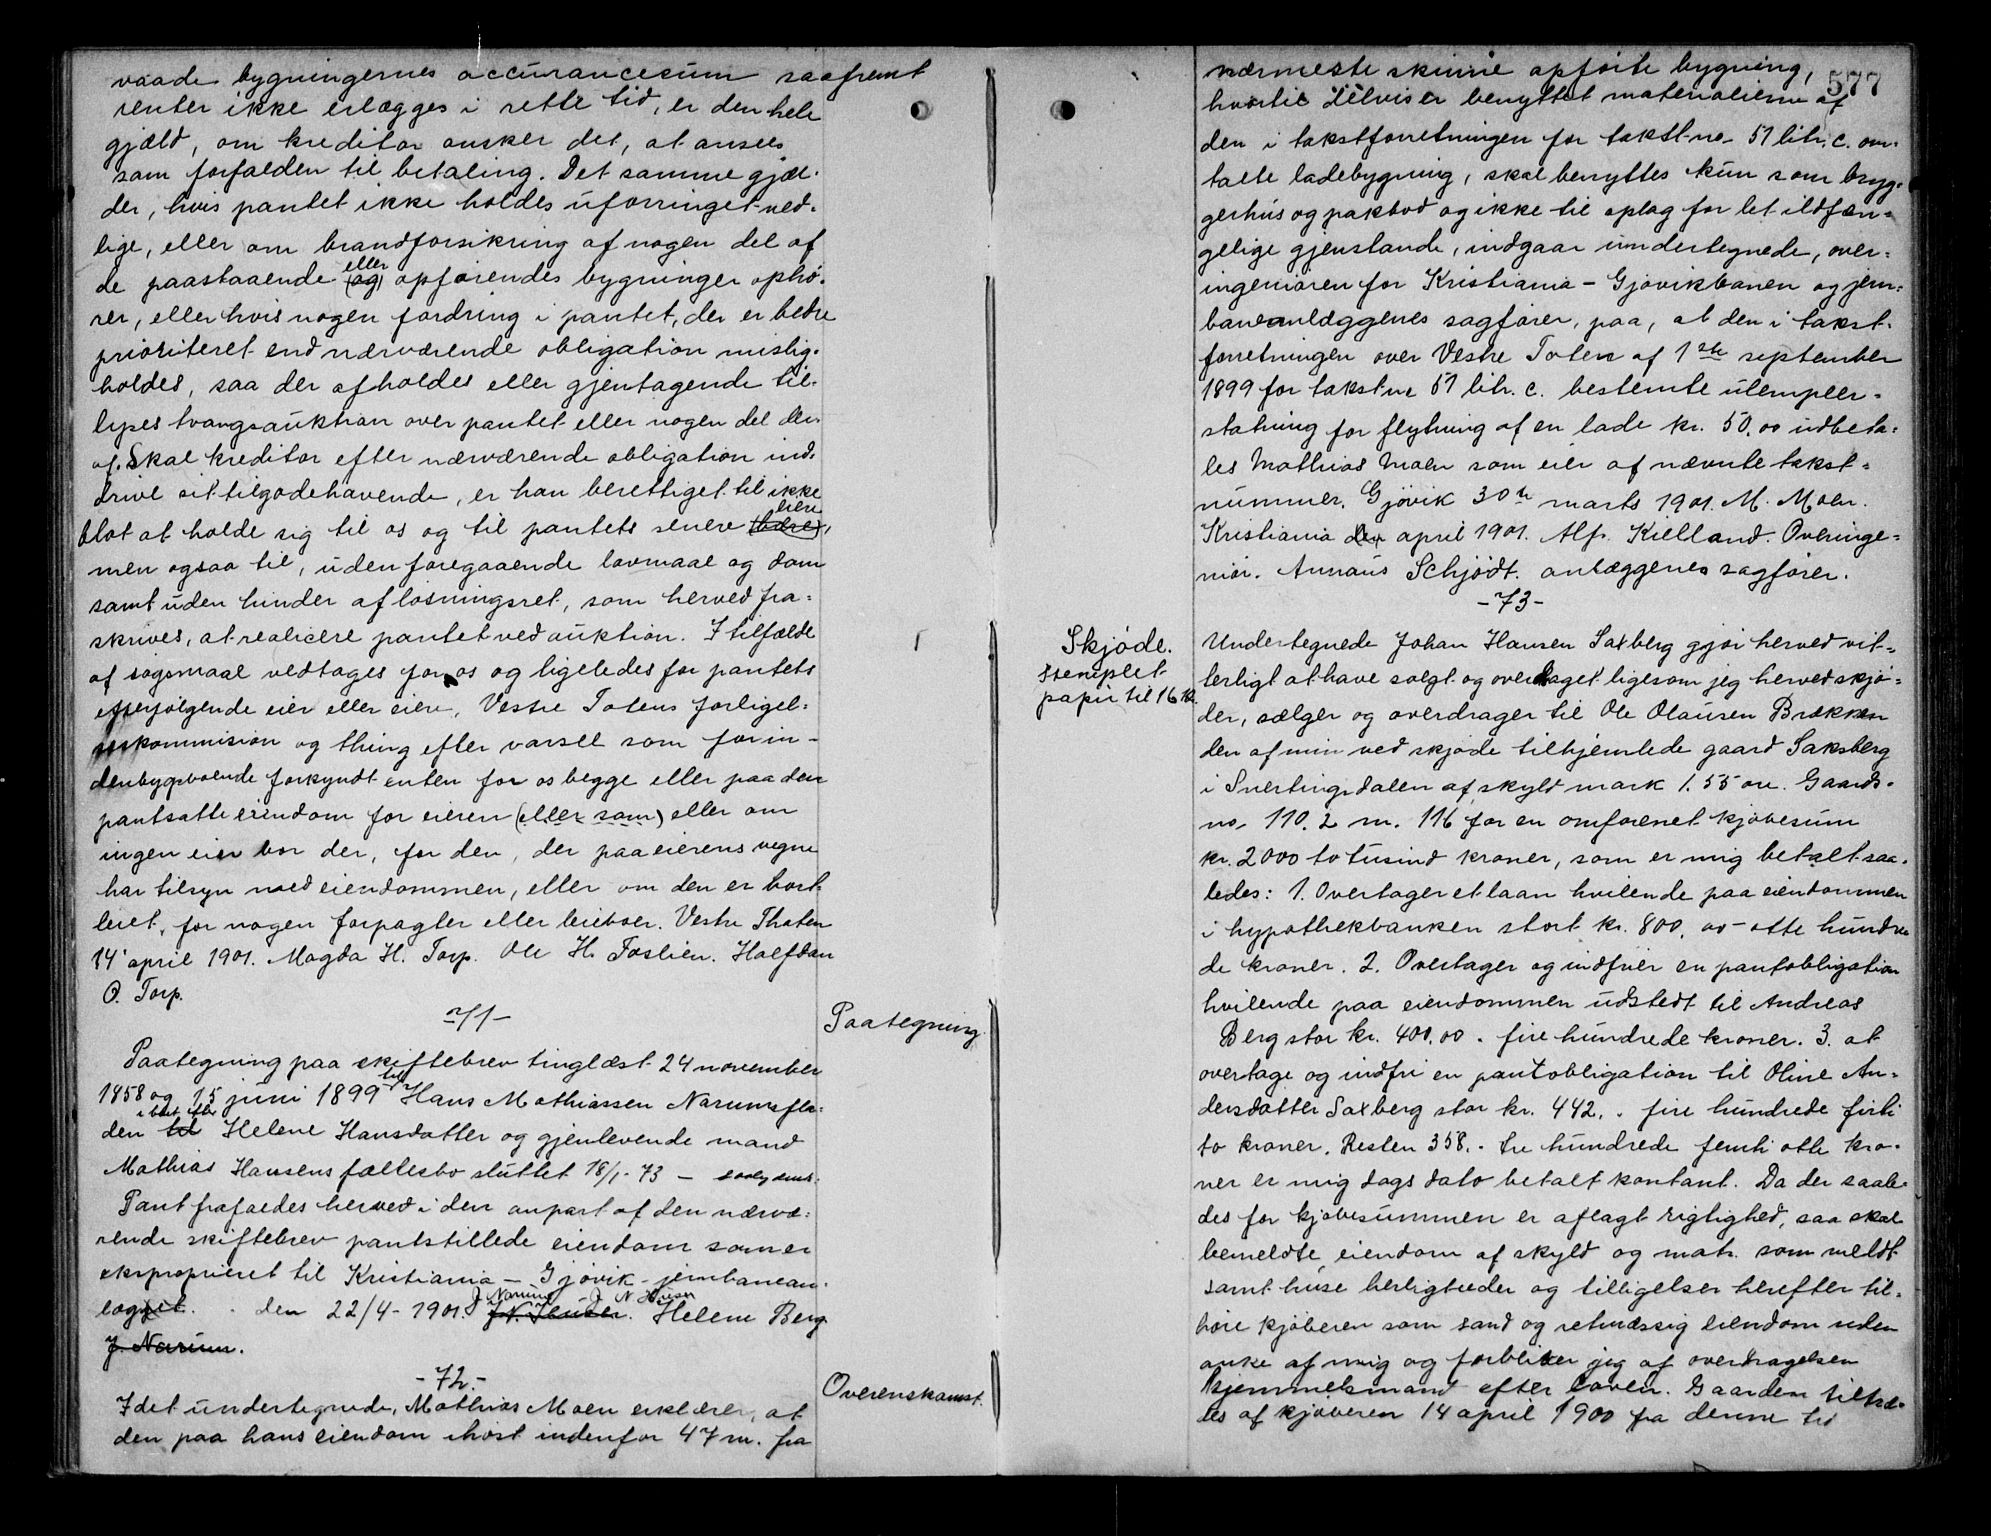 vaade bygningernes accurancesum saafremt
renter ikke erlægges i rette tid, er den hele
gjæld, om kreditor ønsker det, at ansees
som forfalden til betaling. Det samme gjæl-
der, hvis pantet ikke holdes uforringet ved-
lige, eller om brandforsikring af nogen del af
de paastaaende (og) eller opførendes bygninger ophø-
rer, eller hvis nogen fordring i pantet, der er bedre
prioriteret end nærværende obligation mislig-
holdes, saa der afholdes eller gjentagende til-
lyses tvangsauktion over pantet eller nogen del der-
af. Skal kreditor efter nærværende obligation ind-
drive sit tilgodehavende, er han berettiget til ikke
blot at holde sig til os og til pantets senere eiere
men ogsaa til, uden foregaaende lovmaal og dom
samt uden hinder af løsningsret, som herved fra-
skrives, at realicere pantet ved auktion. I tilfælde
af søgsmaal vedtages for os og ligeledes for pantets
efterfølgende eier eller eiere, Vestre Totens forligel-
seskommision og thing efter varsel som for in-
denbygsboende forkyndt enten for os begge eller paa den
pantsatte eiendom for eieren (eller som) eller om
ingen eier bor der, for den, der paa eierens vegne
har tilsyn med eiendommen, eller om den er bort-
leiet, for nogen forpagter eller leieboer. Vestre Thoten
14 april 1901. Magda H. Torp. Ole H. Foslien. Halfdan
O. Torp.
-71-
Paategning
Paategning paa skiftebrev tinglæst 24 november
1858 og 15 juni 1899 til Hans Mathiassen Narumsfla-
den til i boet efter Helene Hansdatter og gjenlevende mand
Mathias Hansens fællesbo sluttet 18/1-73 —
Pant frafaldes herved i den anpart af den nærvæ-
rende skiftebrev pantstillede eiendom som er
eksproprieret til Kristiania - Gjøvik - jernbanean-
lægget. den 22/4-1901. J. Narum J N Huser Helene Berg
J. Narum.
-72.-
Overenskomst.
Idet undertegnede, Mathias Moen erklærer, at
den paa hans eiendom ihøst indenfor 47 m. fra
577
nærmeste skinne opførte bygning,
hvortil delvis er benyttet materialierne af
den i takstforretningen for takst no 57 litr. c. om-
talte ladebygning, skal benyttes kun som bryg-
gerhus og pakbod og ikke til oplag for let ildfæn-
gelige gjenstande, indgaar undertegnede, over-
ingeniøren for Kristiania - Gjøvikbanen og jern-
baneanlæggenes sagfører, paa, at den i takst-
forretningen over Vestre Toten af 1ste september
1899 for takst no 57 litr. c. bestemte ulempeer-
statning for flytning af en lade kr. 50.00 udbeta-
les Mathias Moen som eier af nævnte takst-
nummer. Gjøvik 30te marts 1901. M. Moen.
Kristiania den april 1901. Alf. Kielland. Overinge-
niør. Annæus Schjødt. anlæggenes sagfører.
-73-
Skjøde.
Stemplet
papir til 16 kr.
Undertegnede Johan Hansen Saxberg gjør herved vit-
terligt at have solgt og overdraget ligesom jeg herved skjø-
der, sælger og overdrager til Ole Olausen Brækken
den af min ved skjøde tilhjemlede gaard Saksberg
i Snertingdalen af skyld mark 1.55 øre. Gaards-
no. 110.2 m. 116 for en omforenet kjøbesum
kr. 2000 to tusind kroner, som er mig betalt saa-
ledes: 1. Overtager et laan hvilende paa eiendommen
i hypothekbanken stort kr. 800.00 - otte hundre-
de kroner. 2. Overtager og indfrier en pantobligation
hvilende paa eiendommen udstedt til Andreas
Berg stor kr. 400.00. fire hundrede kroner. 3. at
overtage og indfri en pantobligation til Oline An-
dersdatter Saxberg stor kr. 442.. fire hundrede firti
to kroner. Resten 358.- tre hundrede femti otte kro-
ner er mig dags dato betalt kontant. Da der saale-
des for kjøbesummen er aflagt rigtighed, saa skal
bemeldte eiendom af skyld og matr. som meldt
samt huse herligheder og tilligelser herefter til-
høre kjøberen som sand og retmæssig eiendom uden
anke af mig og forbliver jeg af overdragelsen
hjemmelsmand efter loven. Gaarden tiltræ-
des af kjøberen 14 april 1900 fra denne tid